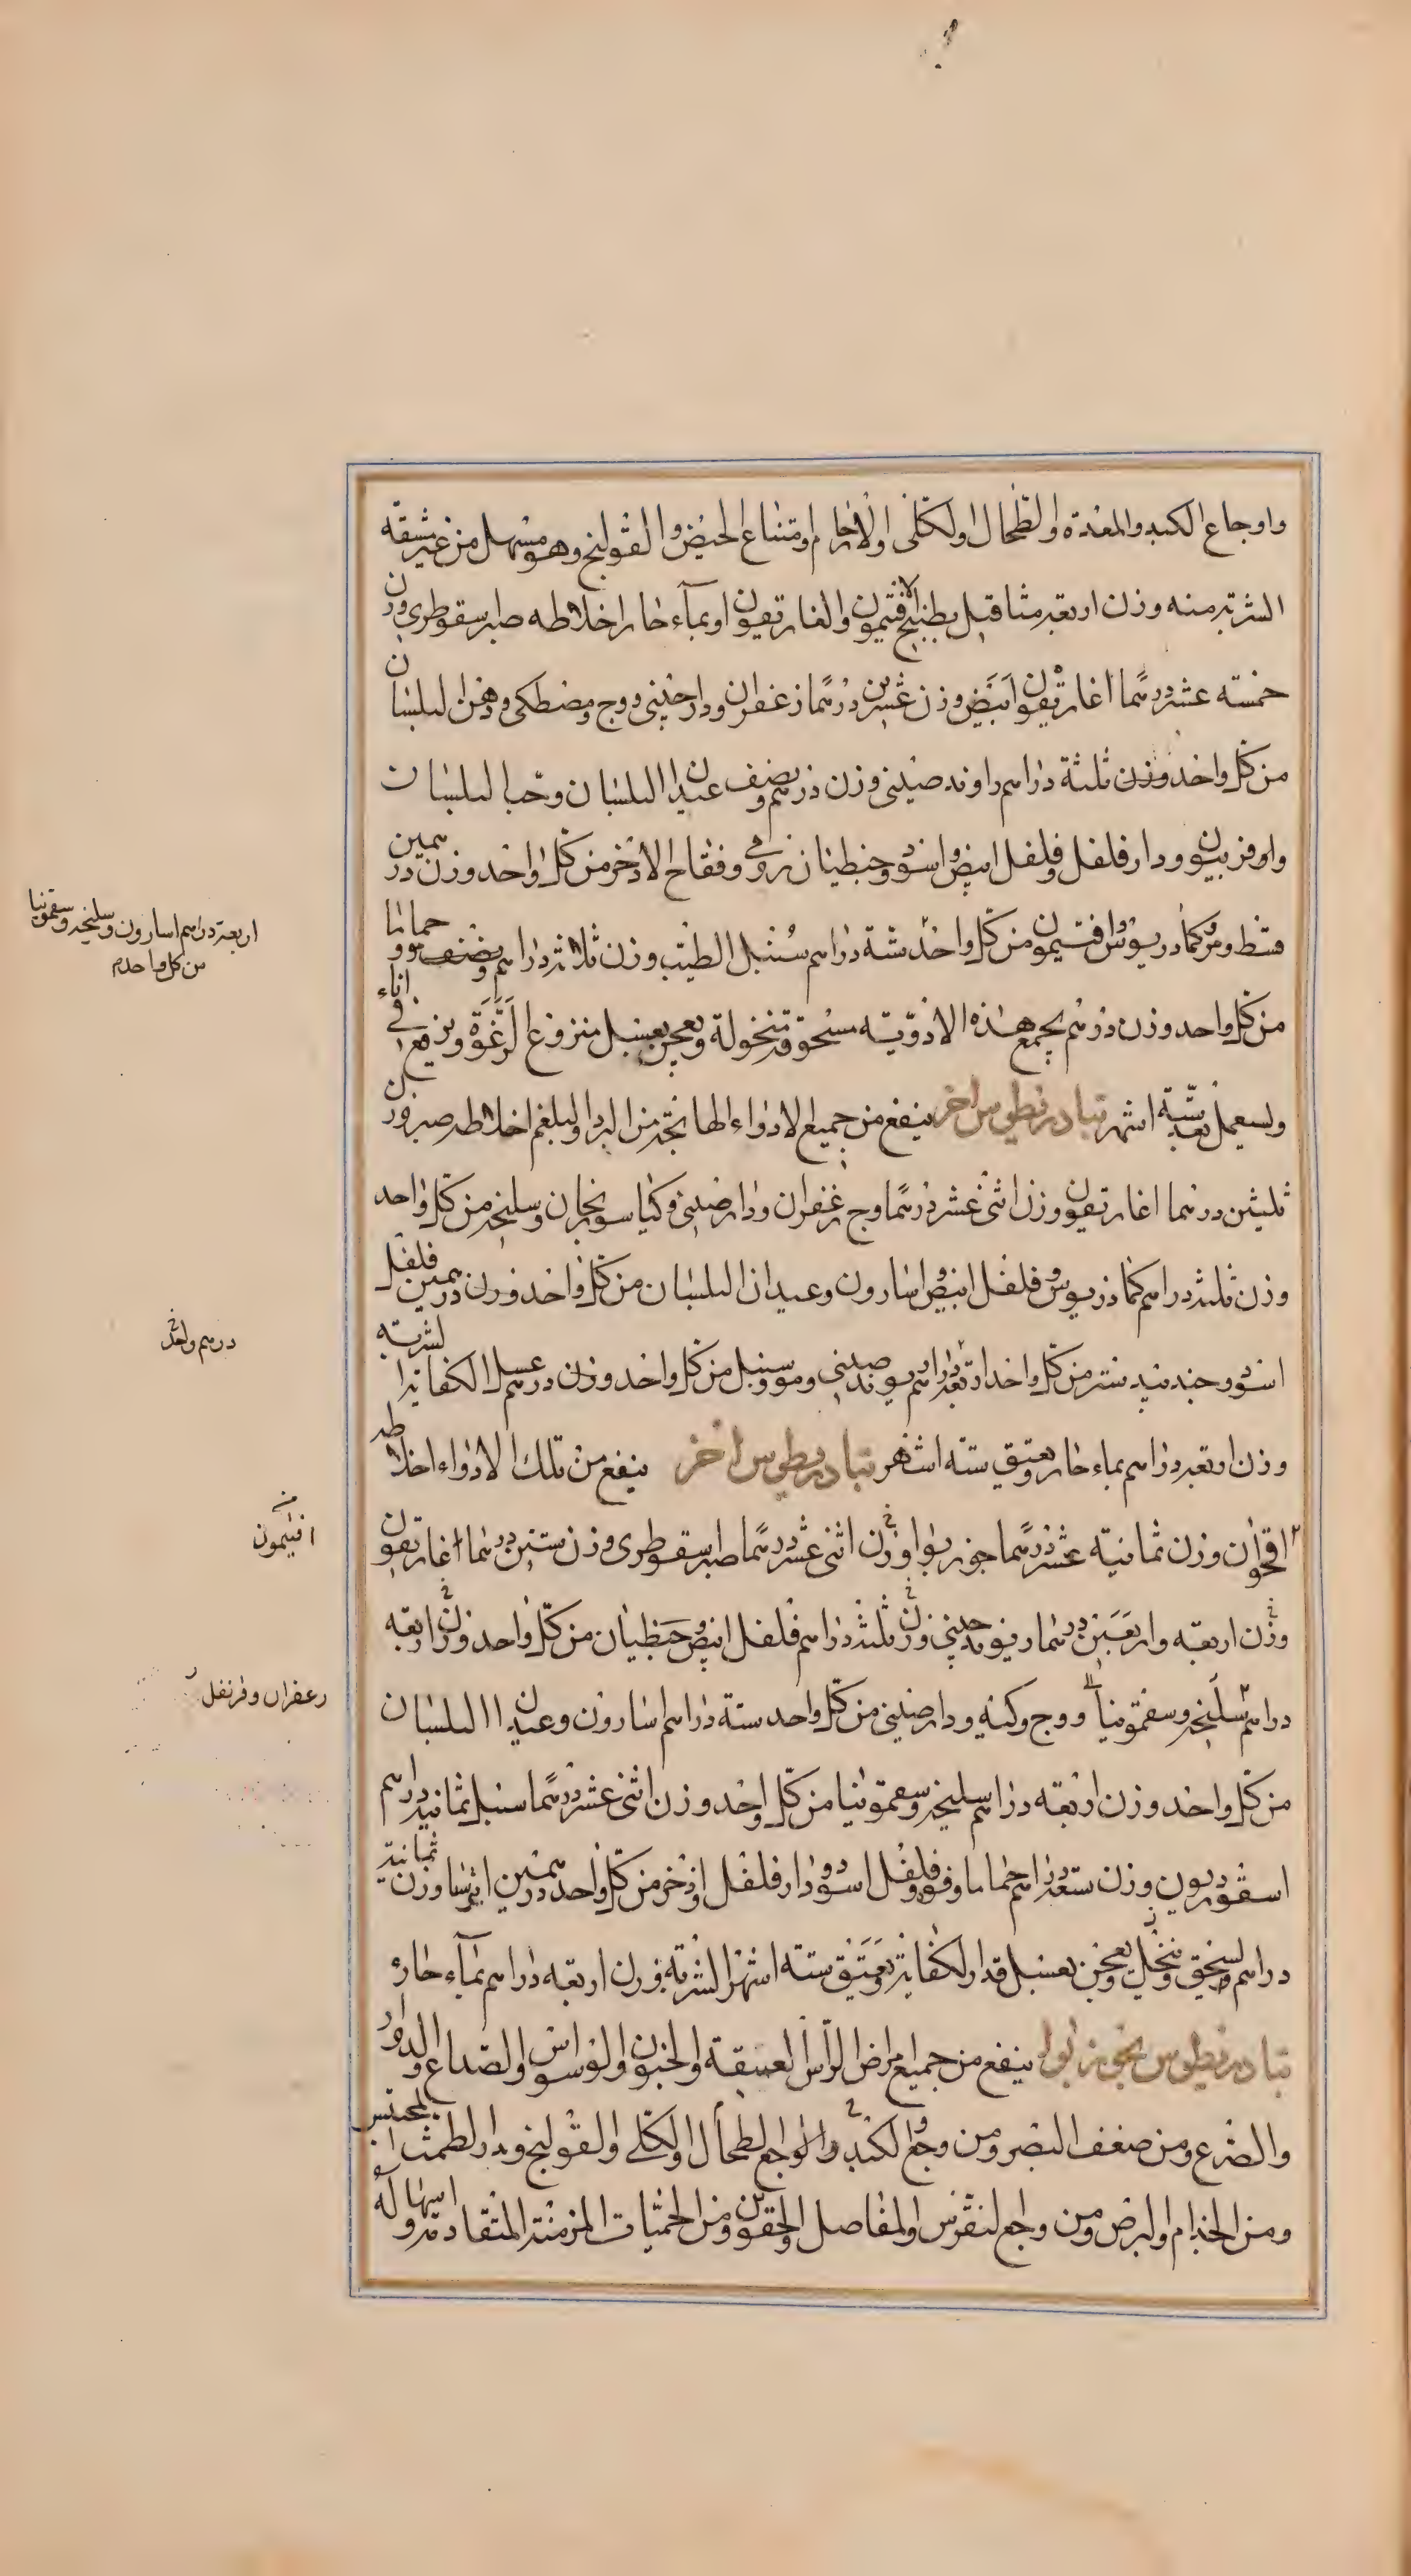 واوجاع الكبد والمعدة والطحال والكلى والارحام وامتناع الحيض والقولنج وهو مسهل من غير مشقة
الشربة منه وزن اربعة مثاقيل بطبيخ الافتيمون والغاريقون او بماء حار اخلاطه صبر سقوطرى وزن
خمسة عشر درهما اغاريقون ابيض وزن عشرين درهما زعفران ودارصينى ووج ومصطكى ودهن البلسان
من كل واحد وزن ثلثة دراهم راوند صينى وزن درهم ونصف عيدان البلسان وحب البلسان
واوفربيون ودارفلفل وفلفل ابيض واسود وجنطيان رومى وفقاح الاذخر من كل واحد وزن درهمين
قسط ومر وكمادريوس وافتيمون من كل واحد ستة دراهم سنبل الطيب وزن ثلاثة دراهم ونصف مو وحماما
من كل واحد وزن درهم يجمع هذه الادوية مسحوقة منخولة وتعجن بعسل منزوع الرغوة ويرفع فى اناء
ويستعمل بعد ستة اشهر تيادريطوس اخر ينفع من جميع الادواء الهائجة من البرد والبلغم اخلاطه صبر وزن
ثلثين درهما اغاريقون وزن اثنى عشر درهما وج زعفران ودارصينى وكيا سورنجان وسليخة من كل واحد
وزن ثلثة دراهم كمادريوس وفلفل ابيض واسارون وعيدان البلسان من كل واحد وزن درهمين فلفل
اسود وجندبيدستر من كل واحد اربعة دراهم ريوند صينى ومو وسنبل من كل واحد وزن درهم عسل الكفاية الشربة
وزن اربعة دراهم بماء حار ويعتق ستة اشهر تيادريطوس اخر ينفع من تلك الادواء اخلاطه
اقحوان وزن ثمانية عشر درهما جوز بوا وزن اثنى عشر درهما صبر سقوطرى وزن ستين درهما اغاريقون
وزن اربعة واربعين درهما ريوند صينى وزن ثلثة دراهم فلفل ابيض وجنطيان من كل واحد وزن اربعة
دراهم سليخة وسقمونيا ووج وكيه ودارصينى من كل واحد ستة دراهم اسارون وعيدان البلسان
من كل واحد وزن اربعة دراهم سليخة وسقمونيا من كل واحد وزن اثنى عشر درهما سنبل ثمانية دراهم
اسقورديون وزن ستة دراهم حماما وفو وفلفل اسود ودارفلفل واذخر من كل واحد درهمين ايرسا وزن ثمانية
دراهم ويسحق وينخل ويعجن بعسل قدر الكفاية ويعتق ستة اشهر الشربة وزن اربعة دراهم بماء حار
تيادريطوس بجوزبوا ينفع من جميع امراض الراس العتيقة والجنون والوسواس والصداع والدوار
والصرع ومن ضعف البصر ومن وجع الكبد واوجاع الطحال والكلى والقولنج ويدر الطمث المحتبس
ومن الجذام والبرص ومن وجع النقرس والمفاصل والحقوين ومن الحميات المزمنة المتقادمة واسهاله
اربعة دراهم اسارون وسليخة وسقمونيا
من كل واحد م
درهم واحد
افتيمون
زعفران وقرنفل